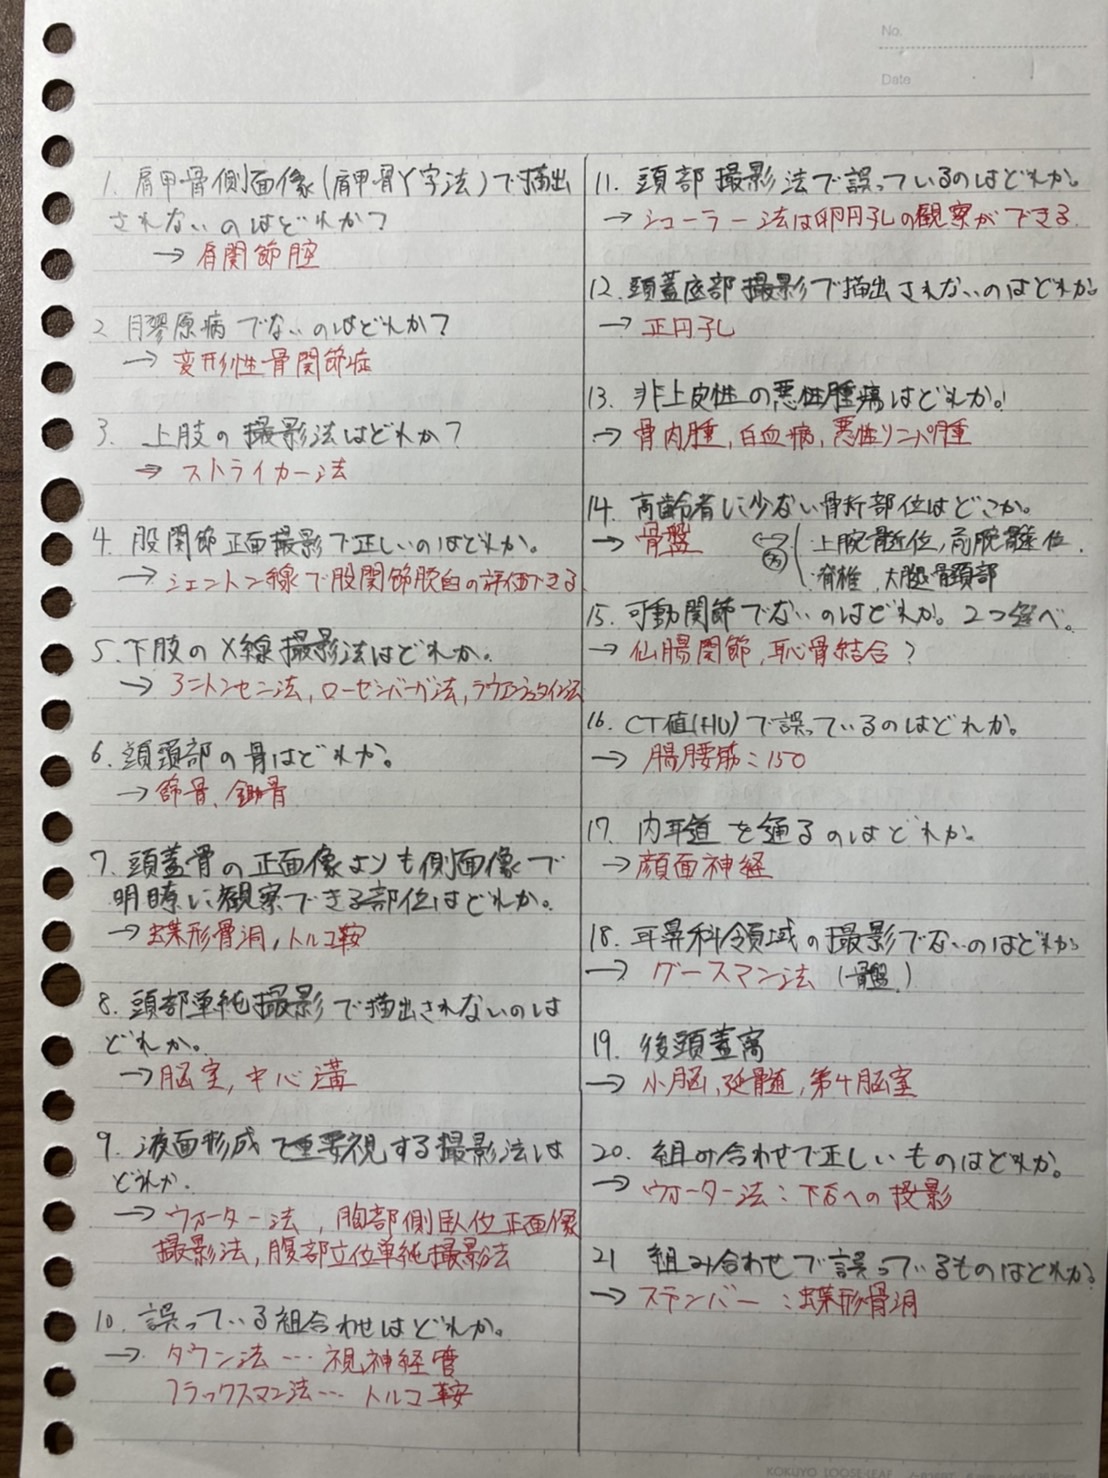 No.
Date
1. 肩甲骨側面像(肩甲骨Y字法)で描出
されないのはどれか?
→ 肩関節腔
2. 膠原病でないのはどれか?
→ 変形性骨関節症
3. 上肢の撮影法はどれか?
→ ストライカー法
4. 股関節正面撮影で正しいのはどれか。
→ シェントン線で股関節脱臼の評価できる
5. 下肢のX線撮影法はどれか。
→ アントンセン法, ローセンバーグ法, ラウエンシュタイン法
6. 頭頸部の骨はどれか。
→ 篩骨、鋤骨
7. 頭蓋骨の正面像よりも側面像で
明瞭に観察できる部位はどれか。
→ 蝶形骨洞, トルコ鞍
8. 頭部単純撮影で描出されないのは
どれか。
→ 脳室, 中心溝
9. 液面形成で重要視する撮影法は
どれか.
→ ウォーター法, 胸部側臥位正面像
撮影法, 腹部立位単純撮影法
10. 誤っている組合わせはどれか。
→ タウン法 … 視神経管
フラックスマン法 … トルコ鞍
11. 頭部撮影法で誤っているのはどれか。
→ シューラー法は卵円孔の観察ができる.
12. 頭蓋底部撮影で描出されないのはどれか
→ 正円孔
13. 非上皮性の悪性腫瘍はどれか。
→ 骨肉腫, 白血病, 悪性リンパ腫
14. 高齢者に少ない骨折部位はどこか。
→ 骨盤 上腕骨近位, 前腕骨遠位,
脊椎, 大腿骨頸部
15. 可動関節でないのはどれか。2つ選べ。
→ 仙腸関節, 恥骨結合?
16. CT値(HU)で誤っているのはどれか。
→ 腸腰筋:150
17. 内耳道を通るのはどれか。
→ 顔面神経
18. 耳鼻科領域の撮影でないのはどれか
→ グースマン法 (骨盤)
19. 後頭蓋窩
→ 小脳, 延髄, 第4脳室
20. 組み合わせで正しいものはどれか。
→ ウォーター法:下方への投影
21 組み合わせで誤っているものはどれか?
→ ステンバー:蝶形骨洞
KOKUYO LOOSE-LEAF